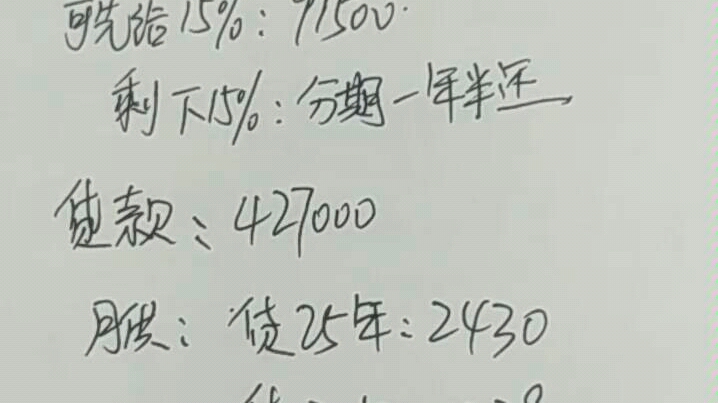 可先给15%：91500.
剩下15%：分期一年半还
贷款：427000
月供：贷25年：2430